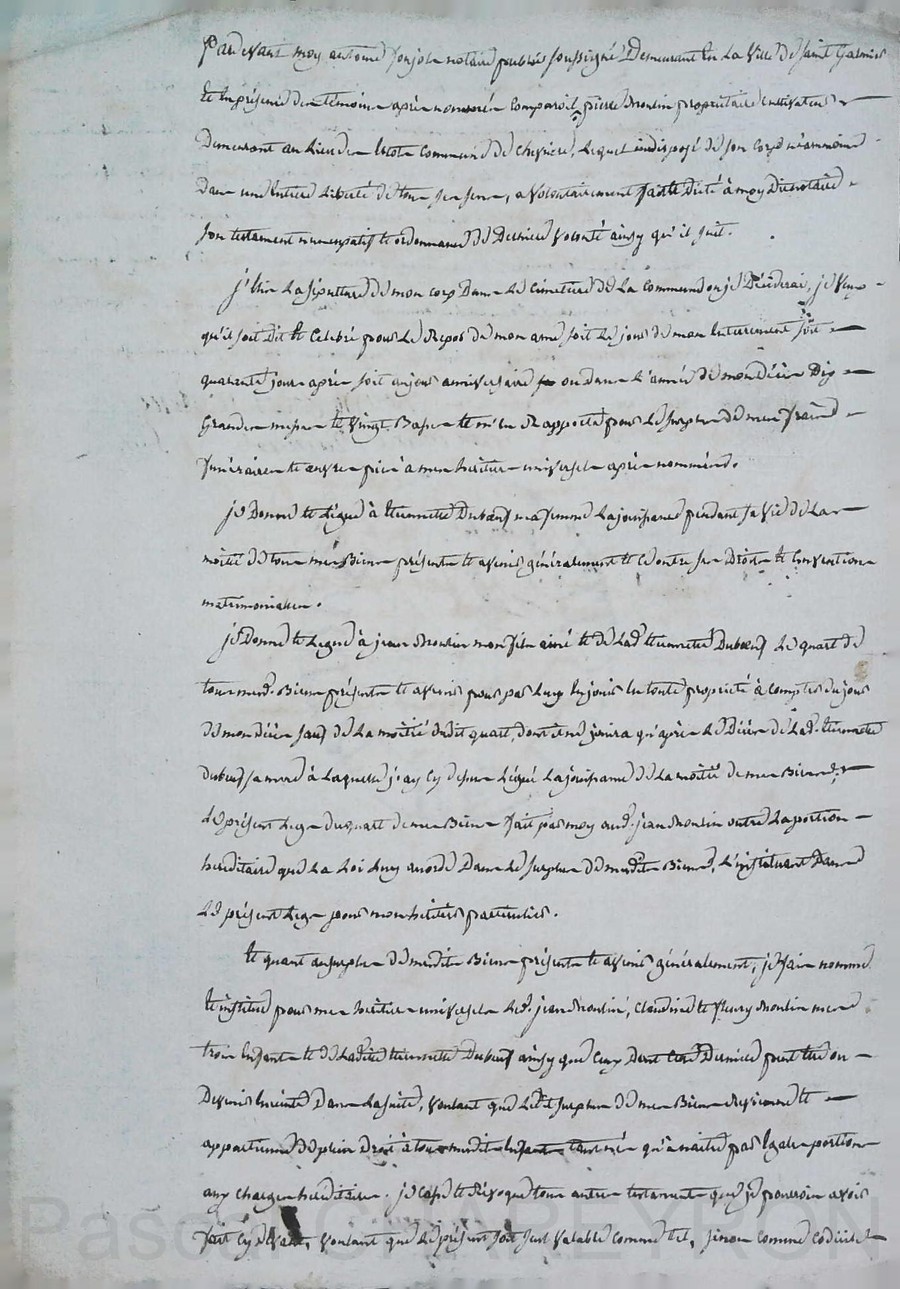 Par devant moy antoine jonjole notaire public soussigné Demeurant En La Ville de saint Galmier
Et En présence des témoins après nommés comparoit pierre Moulin propriétaire cultivateur
Demeurant au Lieu de commune de chevrières, Lequel indisposé de son corps néanmoins
Dans une Entière Liberté de tous ses sens, a Volontairement Dicté à moy Dit notaire
son testament nuncupatif et ordonnance de Dernière Volonté ainsy qu'il suit.
j'Elis La sépulture de mon corps Dans Le cimetière de La commune ou je Décéderai, je Veux
qu'il soit Dit Et Celebré pour Le Repos de mon ame, soit Le jour de mon Enterrement soit
quarante jours après soit au jour anniversaire ou dans L'année de mon décès Dix
Grandes messes Et Vingt Basses Et m'en Rapporte pour Le surplus de mes frais
funéraires Et œuvres pies à mes héritiers universels après nommés.
je Donne Et Lègue à Etiennette Dubœuf ma femme La jouissance pendant sa Vie de La
moitié de tous mes Biens présents Et avenir généralement Et ce outre ses Droits Et Conventions
matrimoniales.
je Donne Et Lègue à jean Moulin mon fils ainé Et de Lad. Etiennette Dubœuf Le quart de
tous mesd. Biens présents Et avenir pour par Luy En jouir En toute propriété à compter du jour
de mon décès sauf de La moitié dudit quart, dont il ne jouira qu'après Le Décès de Lad. Etiennette
Dubœuf sa mère à Laquelle j'ay Cy dessus Légué La jouissance de La moitié de mes Biens,
Le présent Legs du quart de mes Biens fait par moy aud. jean Moulin outre La portion
héréditaire que La Loi Luy accorde Dans Le surplus de mesdits Biens, L'instituant Dans
Le présent Legs pour mon héritier particulier.
Et quant au surplus de mesdits Biens présents Et avenir généralement, je fais nomme
Et institue pour mes héritiers universels Led. jean Moulin, Claudine Et fleury Moulin mes
trois Enfants Et de Ladite Etiennette Dubœuf ainsy que Ceux Dont Cette Dernière peut être ou
Devenir Enceinte Dans La suite, Voulant que Ledit surplus de mes Biens Revienne Et
appartienne de plein Droit à tous mesdits Enfants tant nés qu'à naitre par Egales portions
aux charges héréditaires. je casse Et Révoque tous autres testaments que je pourrois avoir
fait cy devant, Voulant que Le présent soit seul Valable comme tel, sinon comme codicille
Pascal CHAPEYRON